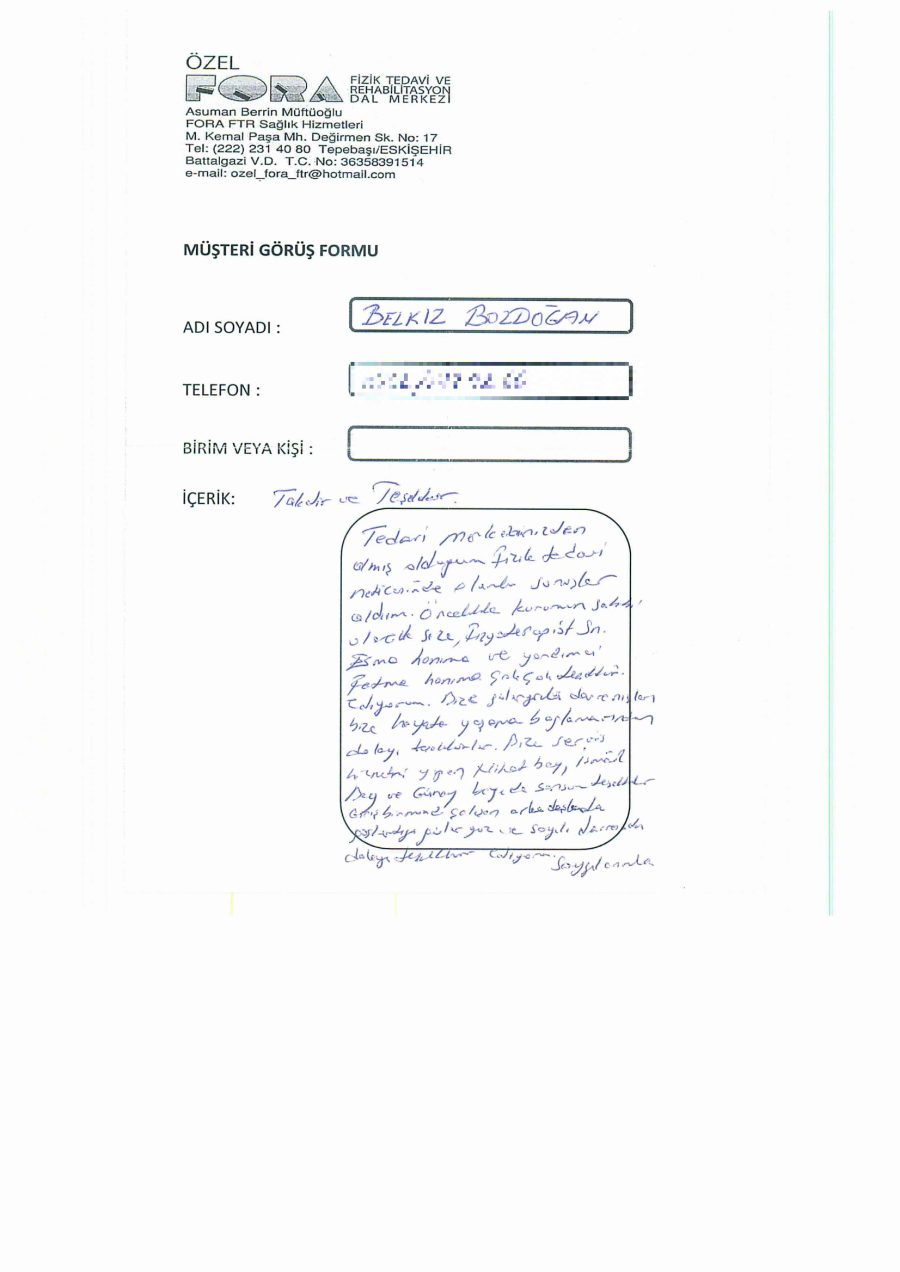 ÖZEL
FORA FİZİK TEDAVİ VE
REHABİLİTASYON
DAL MERKEZİ
Asuman Berrin Müftüoğlu
FORA FTR Sağlık Hizmetleri
M. Kemal Paşa Mh. Değirmen Sk. No: 17
Tel: (222) 231 40 80 Tepebaşı/ESKİŞEHİR
Battalgazi V.D. T.C. No: 36358391514
e-mail: ozel_fora_ftr@hotmail.com
MÜŞTERİ GÖRÜŞ FORMU
ADI SOYADI : BELKIZ BOZDOĞAN
TELEFON :
BİRİM VEYA KİŞİ :
İÇERİK: Takdir ve Teşekkür.
Tedavi Merkezinizden
almış olduğum fizik tedavi
neticesinde olumlu sonuçlar
aldım. Öncelikle kurumun sahibi
olarak size, fizyoterapist Sn.
Esma hanıma ve yardımcı
Fatma hanıma çok çok teşekkür
ediyorum. Bize güleryüzlü davranışları
bize hayata yaşama bağlamasından
dolayı teşekkürler. Bize servis
hizmeti yapan Nihat bey, İsmail
Bey ve Günay beye de sonsuz teşekkürler
Giriş biriminde çalışan arkadaşlarda
güler yüz ve saygılı
dolayı teşekkür ediyorum.
Saygılarımla